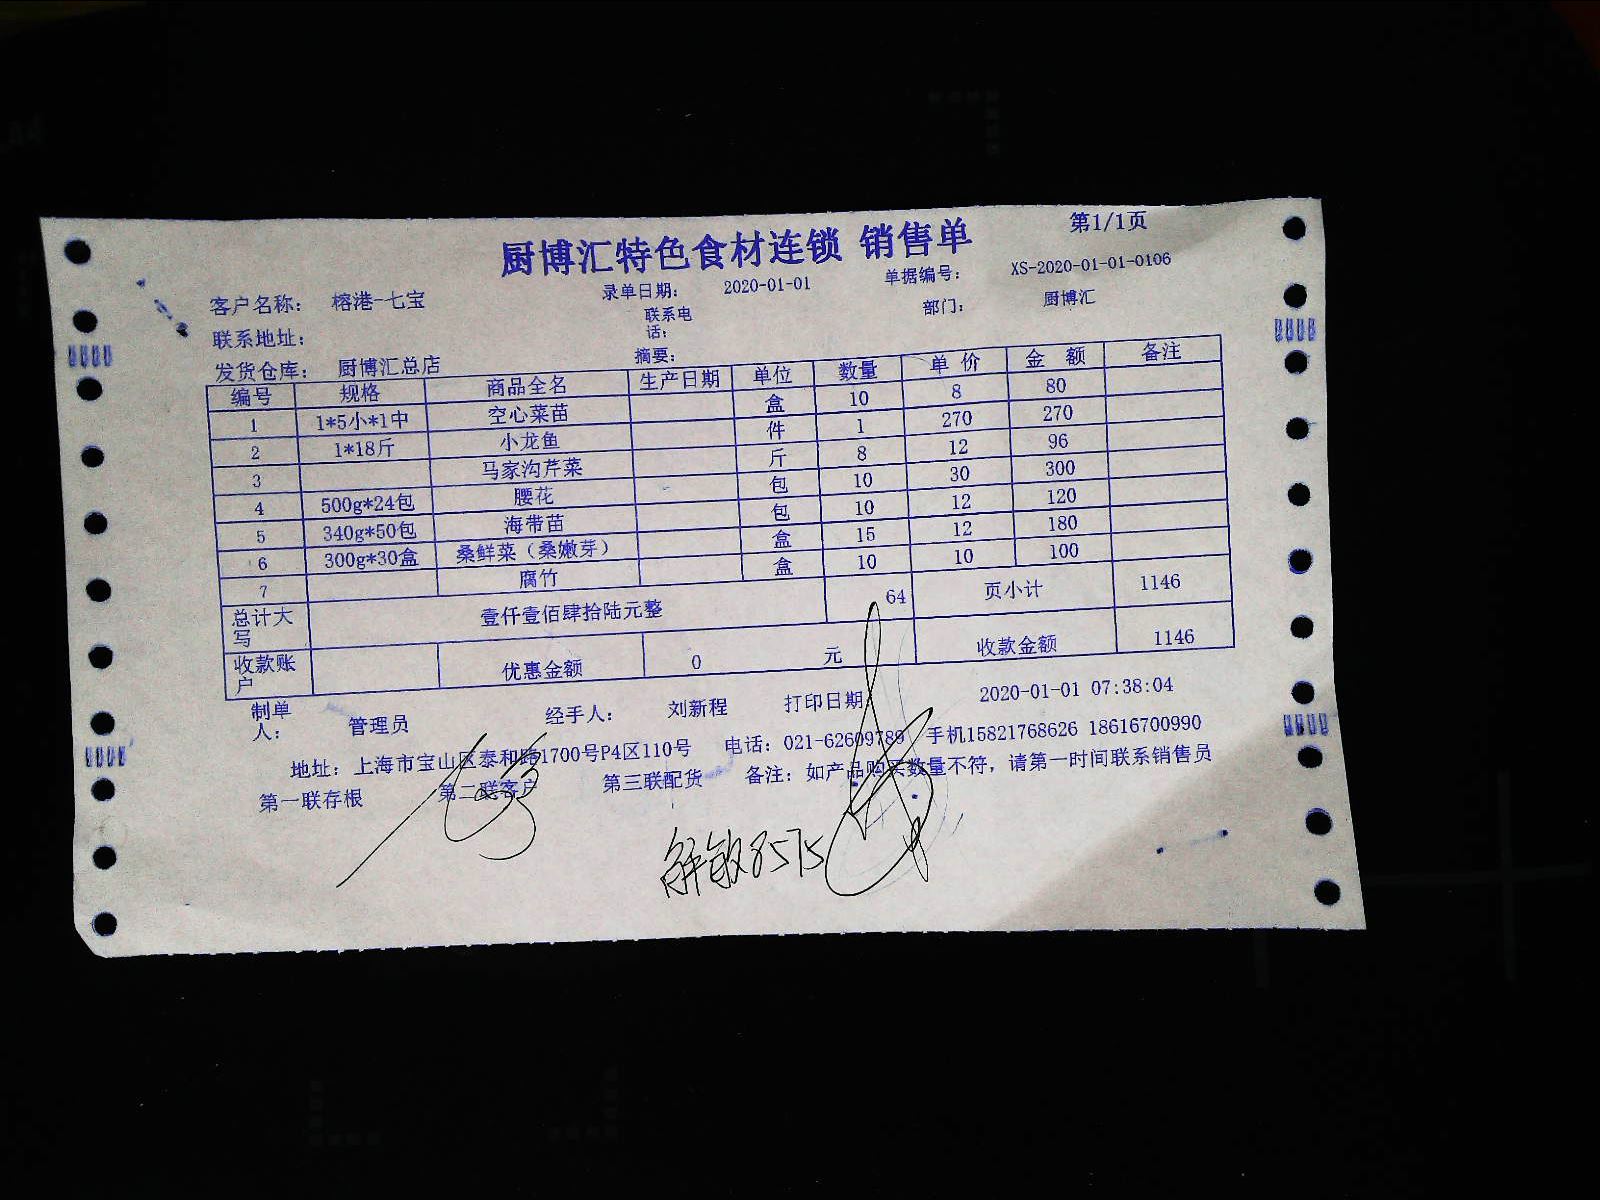 厨博汇特色食材连锁 销售单 第1/1页
客户名称： 榕港-七宝 录单日期： 2020-01-01 单据编号： XS-2020-01-01-0106
联系地址： 联系电话： 部门： 厨博汇
发货仓库： 厨博汇总店 摘要：
编号 规格 商品全名 生产日期 单位 数量 单价 金额 备注
1 1*5小*1中 空心菜苗 盒 10 8 80
2 1*18斤 小龙鱼 件 1 270 270
3 马家沟芹菜 斤 8 12 96
4 500g*24包 腰花 包 10 30 300
5 340g*50包 海带苗 包 10 12 120
6 300g*30盒 桑鲜菜（桑嫩芽） 盒 15 12 180
7 腐竹 盒 10 10 100
总计大写 壹仟壹佰肆拾陆元整 64 页小计 1146
收款账户 优惠金额 0 元 收款金额 1146
制单人： 管理员 经手人： 刘新程 打印日期 2020-01-01 07:38:04
地址：上海市宝山区泰和路1700号P4区110号 电话：021-62609789 手机15821768626 18616700990
第一联存根 第二联客户 第三联配货 备注：如产品购买数量不符，请第一时间联系销售员
8575